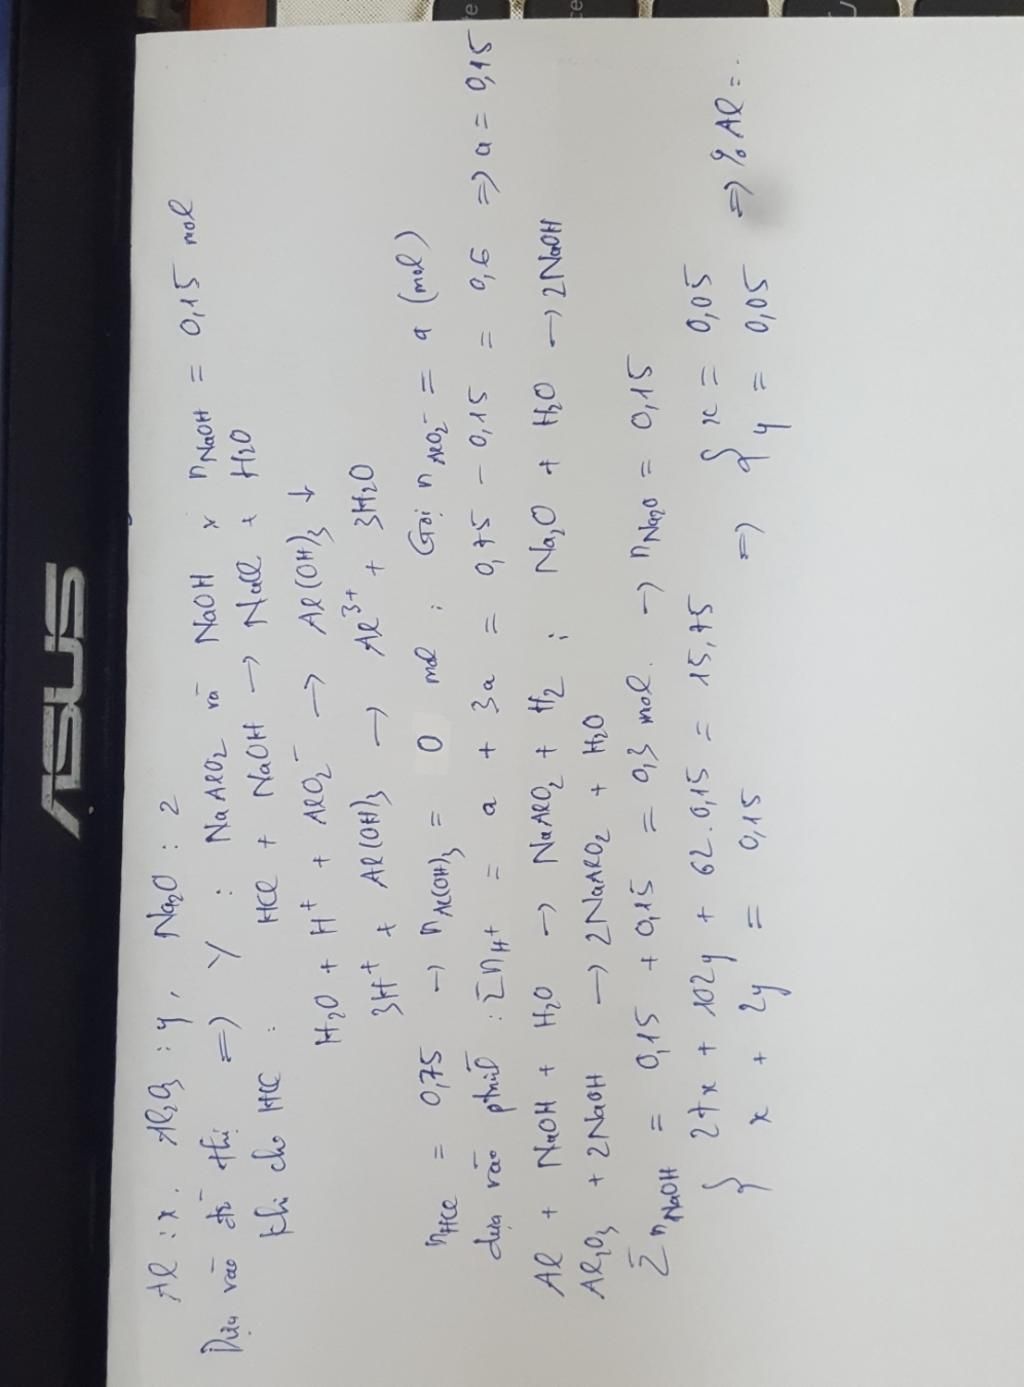 ASUS
Al : x. Al2O3 : y, Na2O : 2
Dựa vào đồ thị => Y : NaAlO2 và NaOH x nNaOH = 0,15 mol
Khi cho HCl : HCl + NaOH → NaCl + H2O
H2O + H+ + AlO2- → Al(OH)3 ↓
3H+ + Al(OH)3 → Al3+ + 3H2O
nHCl = 0,75 → nAl(OH)3 = 0 mol : Gọi nAlO2- = a (mol)
dựa vào ptrình : ΣnH+ = a + 3a = 0,75 - 0,15 = 0,6 => a = 0,15
Al + NaOH + H2O → NaAlO2 + H2 ; Na2O + H2O → 2NaOH
Al2O3 + 2NaOH → 2NaAlO2 + H2O
ΣnNaOH = 0,15 + 0,15 = 0,3 mol. → nNa2O = 0,15
{ 27x + 102y + 62.0,15 = 15,75 => { x = 0,05 => % Al = ..
x + 2y = 0,15 y = 0,05